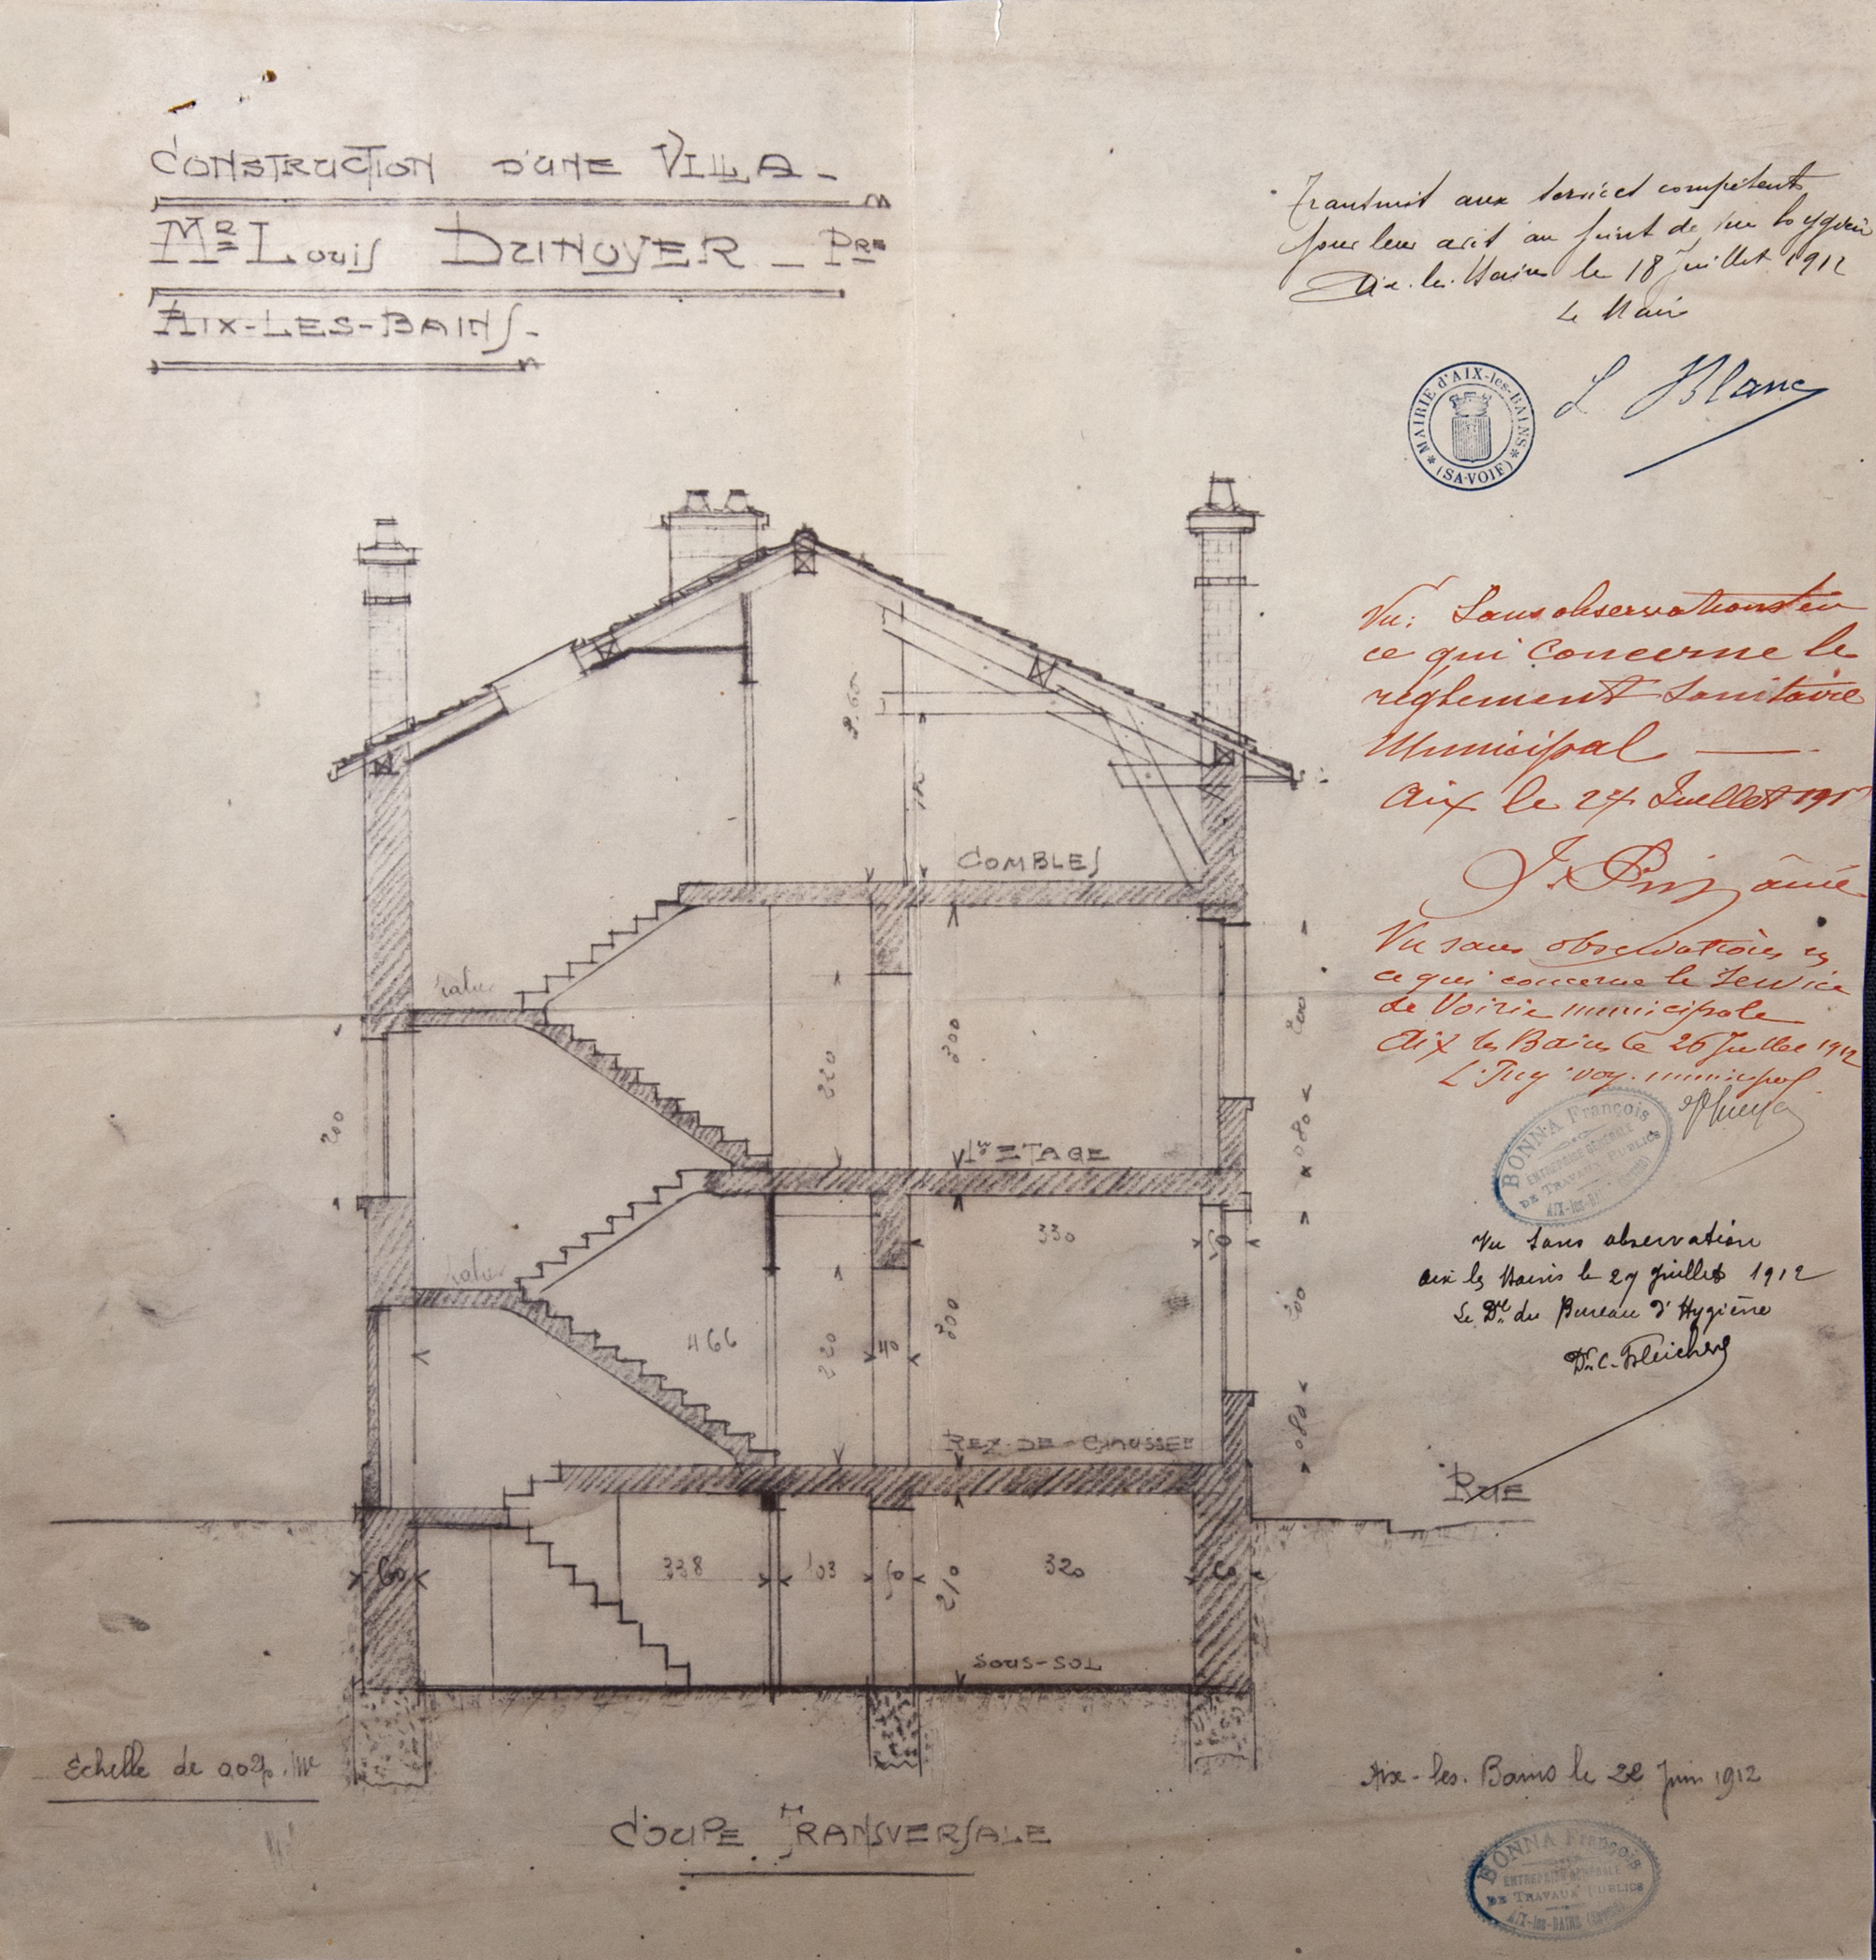 CONSTRUCTION D'UNE VILLA -
MR LOUIS DUNOYER - PRE
AIX-LES-BAINS -
Transmit aux services compétents
pour leur avis au point de vue hygiène
Aix-les-Bains le 18 Juillet 1912
Le Maire
MAIRIE d'AIX-les-BAINS
(SAVOIE)
L Blanc
Vu: Sans observations en
ce qui concerne le
règlement Sanitaire
Municipal
Aix le 24 Juillet 191
Vu sans observations en
ce qui concerne le Service
de Voirie municipale
Aix les Bains le 26 Juillet 1912
L'Ing voy. municipal
BONNA François
ENTREPRISE GÉNÉRALE
DE TRAVAUX PUBLICS
AIX-les-BAINS (Savoie)
Vu sans observation
Aix les Bains le 27 Juillet 1912
Le Dr du Bureau d'Hygiène
Dr C.
COMBLES
palier
200
220
300
200
080
1er ETAGE
330
50
palier
466
220
40
300
200
080
REZ-DE-CHAUSSEE
RUE
60
338
103
50
210
320
60
SOUS-SOL
Echelle de 002 p. m
COUPE TRANSVERSALE
Aix-les-Bains le 22 Juin 1912
BONNA François
ENTREPRISE GÉNÉRALE
DE TRAVAUX PUBLICS
AIX-les-BAINS (Savoie)